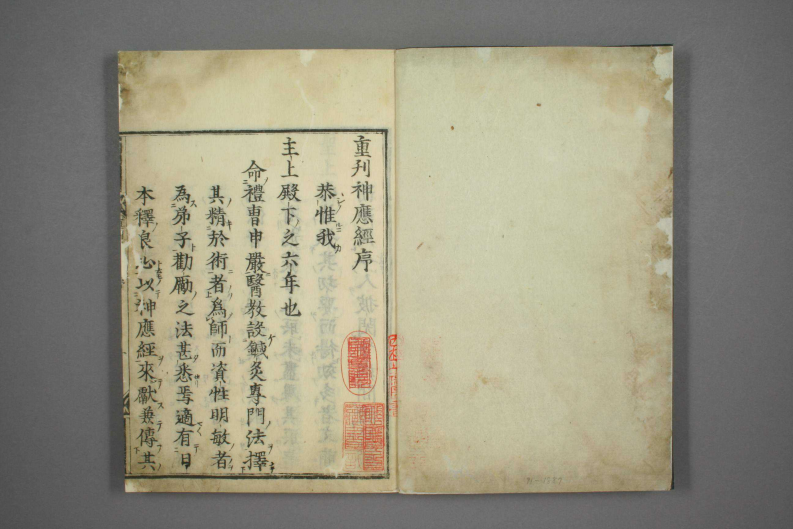 重刋神應經序
恭惟我
主上殿下之六年也
命禮曹申嚴醫教設鍼灸專門法擇
其精於術者爲師而資性明敏者
爲弟子勸勵之法甚悉焉適有日
本釋良心以神應經來獻兼傳其